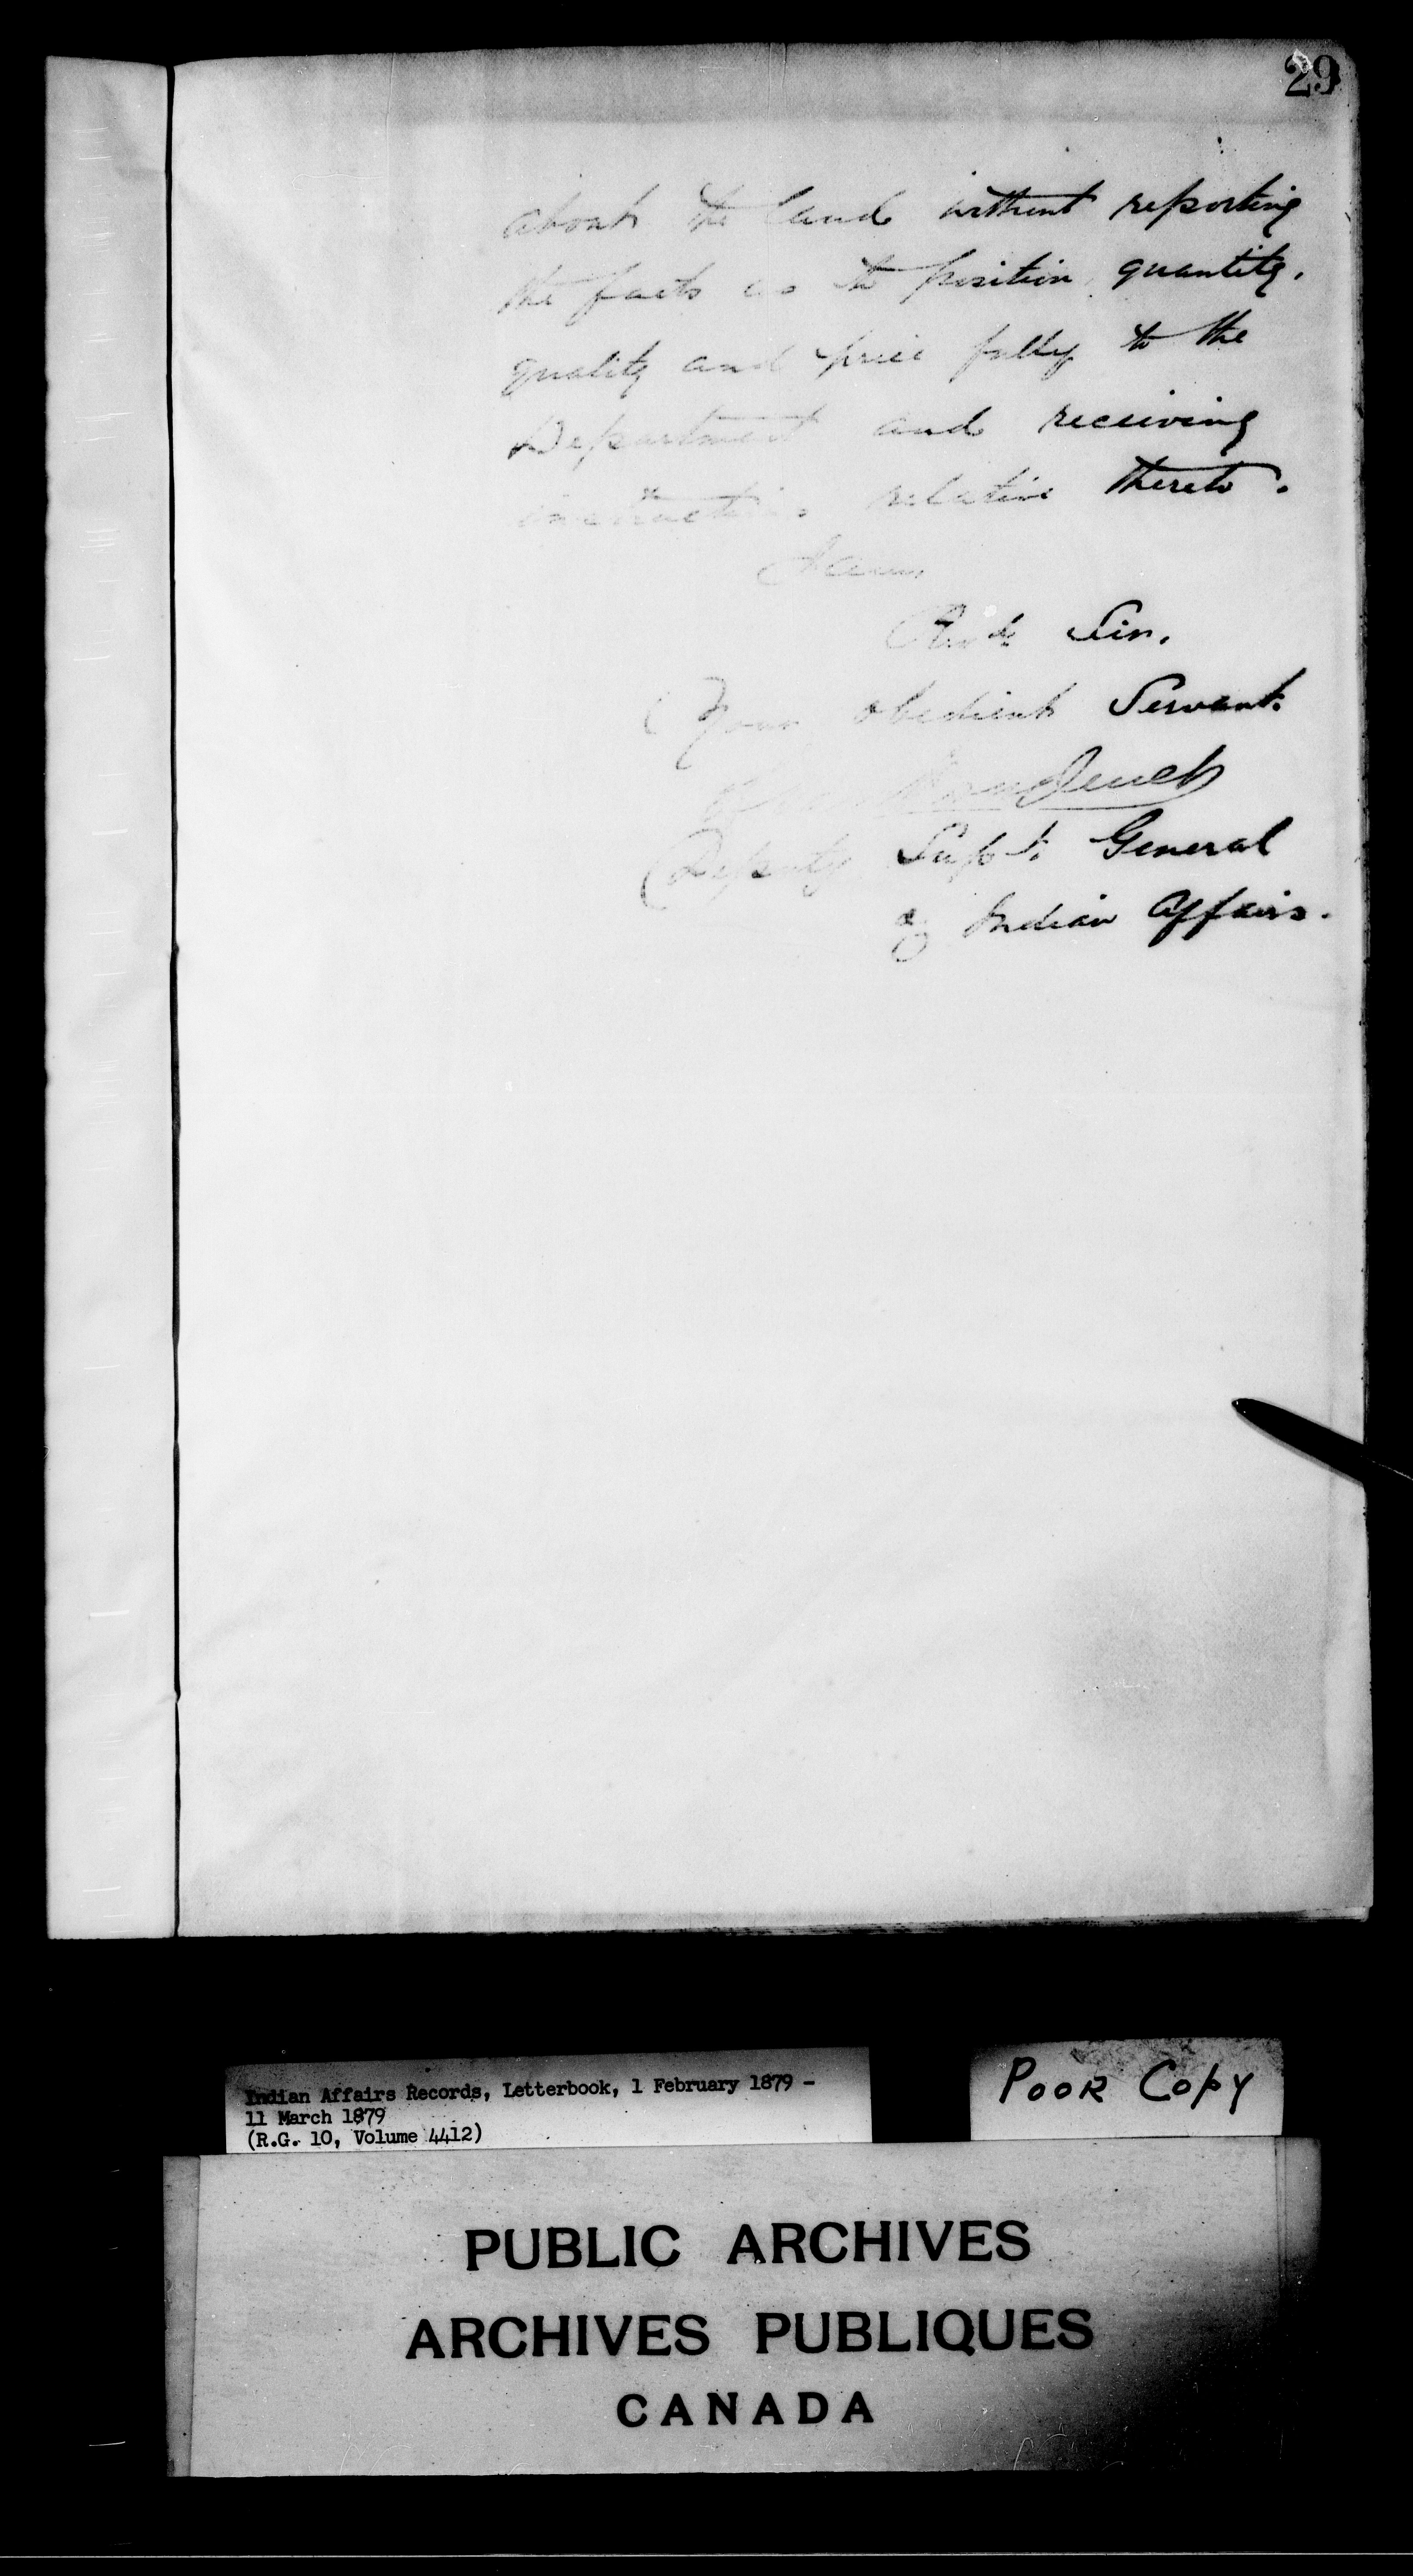 29
about the land without reporting
the facts as to position, quantity,
quality and price fully to the
Department and receiving
instructions relative thereto.
I am,
Revd. Sir,
Your obedient Servant.
Deputy Supt. General
of Indian Affairs.
Indian Affairs Records, Letterbook, 1 February 1879 -
11 March 1879
(R.G. 10, Volume 4412)
POOR COPY
PUBLIC ARCHIVES
ARCHIVES PUBLIQUES
CANADA